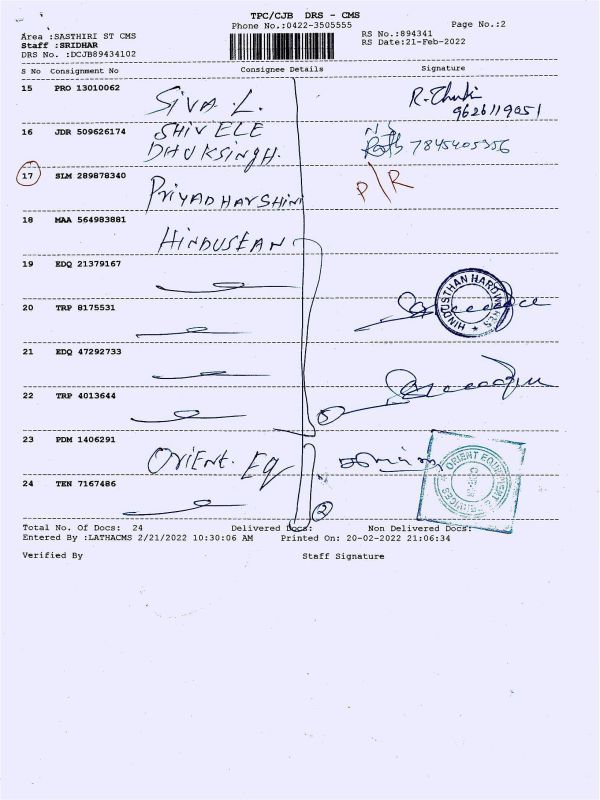 TPC/CJB DRS - CMS
Phone No.:0422-3505555
Page No.:2
Area :SASTHIRI ST CMS
RS No.:894341
Staff :SRIDHAR
RS Date:21-Feb-2022
DRS No. :DCJB89434102
S No Consignment No Consignee Details Signature
15 PRO 13010062 SIVA.L.
9626119051
16 JDR 509626174 SHIV ELE
DHUKSINGH. 7845405356
17 SLM 289878340 PRIYADHARSHINI P/R
18 MAA 564983881 HINDUSEAN
19 EDQ 21379167
HINDUSTHAN HARDWARES
20 TRP 8175531
21 EDQ 47292733
22 TRP 4013644
5
23 PDM 1406291 ORIENT. Eq
ORIENT EQUIPMENT
24 TEN 7167486
2
Total No. Of Docs: 24 Delivered Docs: Non Delivered Docs:
Entered By :LATHACMS 2/21/2022 10:30:06 AM Printed On: 20-02-2022 21:06:34
Verified By Staff Signature